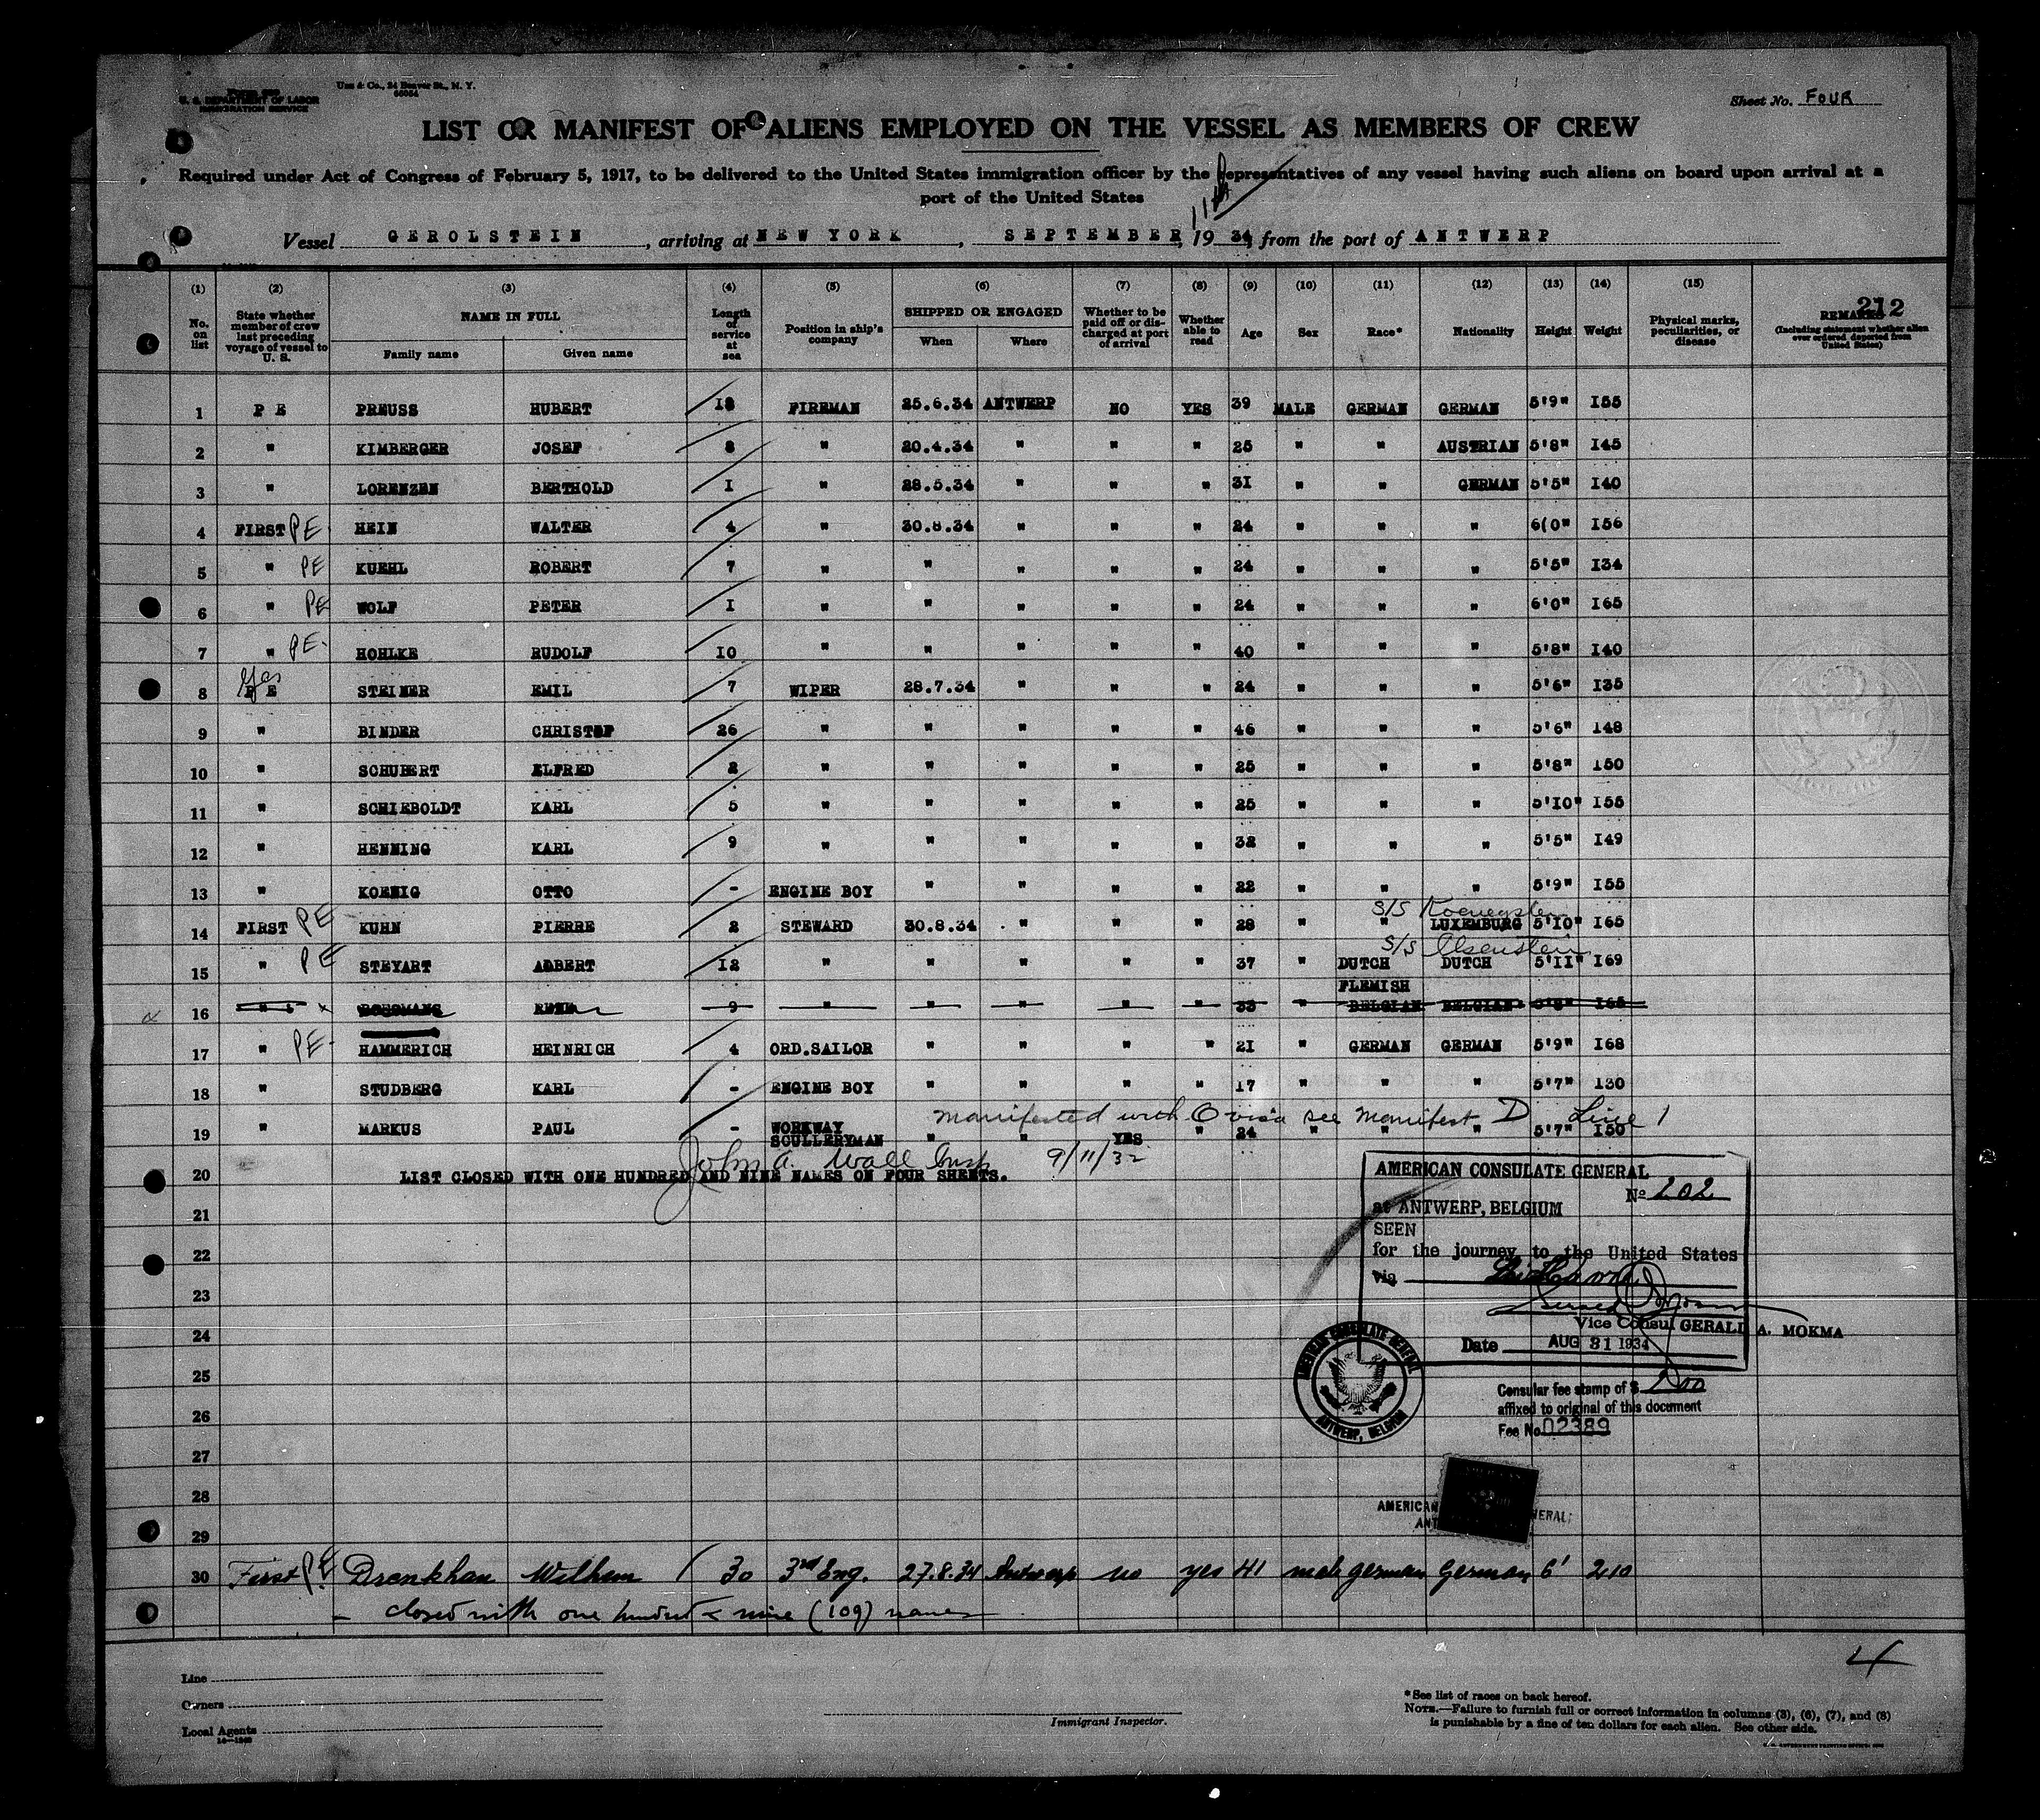 U. S. DEPARTMENT OF LABOR
IMMIGRATION SERVICE
Unz & Co., 24 Beaver St., N. Y.
Sheet No. FOUR
LIST OR MANIFEST OF ALIENS EMPLOYED ON THE VESSEL AS MEMBERS OF CREW
Required under Act of Congress of February 5, 1917, to be delivered to the United States immigration officer by the representatives of any vessel having such aliens on board upon arrival at a
port of the United States
11th
Vessel GEROLSTEIN, arriving at NEW YORK, SEPTEMBER, 1934, from the port of ANTWERP
(1) (2) (3) (4) (5) (6) (7) (8) (9) (10) (11) (12) (13) (14) (15)
212
No. on list
State whether member of crew last preceding voyage of vessel to U. S.
NAME IN FULL
Family name Given name
Length of service at sea
Position in ship's company
SHIPPED OR ENGAGED
When Where
Whether to be paid off or discharged at port of arrival
Whether able to read
Age
Sex
Race*
Nationality
Height
Weight
Physical marks, peculiarities, or disease
REMARKS
(Including statement whether alien ever ordered deported from United States)
1 P E PREUSS HUBERT FIREMAN 25.6.34 ANTWERP NO YES 39 MALE GERMAN GERMAN 5'9" I55
2 " KIMBERGER JOSEF 8 " 20.4.34 " " " 25 " " AUSTRIAN 5'8" I45
3 " LORENZEN BERTHOLD I " 28.5.34 " " " 3I " " GERMAN 5'5" I40
4 FIRST PE. HEIN WALTER 4 " 30.8.34 " " " 24 " " " 6(0" I56
5 " PE KUEHL ROBERT 7 " " " " " 24 " " " 5'5" I34
6 " PE WOLF PETER I " " " " " 24 " " " 6'0" I65
7 " PE. HOHLKE RUDOLF IO " " " " " 40 " " " 5'8" I40
8 Yes P E STEINER EMIL 7 WIPER 28.7.34 " " " 24 " " " 5'6" I35
9 " BINDER CHRISTOF 26 " " " " " 46 " " " 5'6" 148
10 " SCHUBERT ELFRED 2 " " " " " 25 " " " 5'8" 150
11 " SCHIEBOLDT KARL 5 " " " " " 25 " " " 5'IO" I55
12 " HENNING KARL 9 " " " " " 32 " " " 5'5" I49
13 " KOENIG OTTO - ENGINE BOY " " " " 22 " " " 5'9" I55
S/S
14 FIRST PE KUHN PIERRE 2 STEWARD 30.8.34 " " " 28 " " LUXEMBURG 5'IO" I65
S/S
15 " PE STEYART ADBERT I2 " " " " " 37 " DUTCH DUTCH 5'II" I69
FLEMISH
16 " 9 " " " " " 33 " BELGIAN BELGIAN 5'8" I65
17 " PE. HAMMERICH HEINRICH 4 ORD.SAILOR " " " " 21 " GERMAN GERMAN 5'9" I68
18 " STUDBERG KARL - ENGINE BOY " " " " 17 " " " 5'7" 130
manifested with O visa see Manifest D Line 1
19 " MARKUS PAUL - WORKWAY SCULLERYMAN " " YES " 24 " " " 5'7" I50
John A. Wall Insp 9/11/32
20 LIST CLOSED WITH ONE HUNDRED AND NINE NAMES ON FOUR SHEETS.
21
22
23
24
25
26
27
28
29
AMERICAN CONSULATE GENERAL
No 202
at ANTWERP, BELGIUM
SEEN
for the journey to the United States
via
Vice Consul GERALD A. MOKMA
Date AUG 31 1934
AMERICAN CONSULATE GENERAL
ANTWERP, BELGIUM
Consular fee stamp of $
affixed to original of this document
Fee No. 02389
30 First PE Drenkhan Wilhem 30 3rd Eng. 27.8.34 Antwerp no yes 41 male german German 6' 210
- closed with one hundred & nine (109) names
4
Line
Owners
Local Agents
Immigrant Inspector.
*See list of races on back hereof.
NOTE.—Failure to furnish full or correct information in columns (3), (6), (7), and (8)
is punishable by a fine of ten dollars for each alien. See other side.